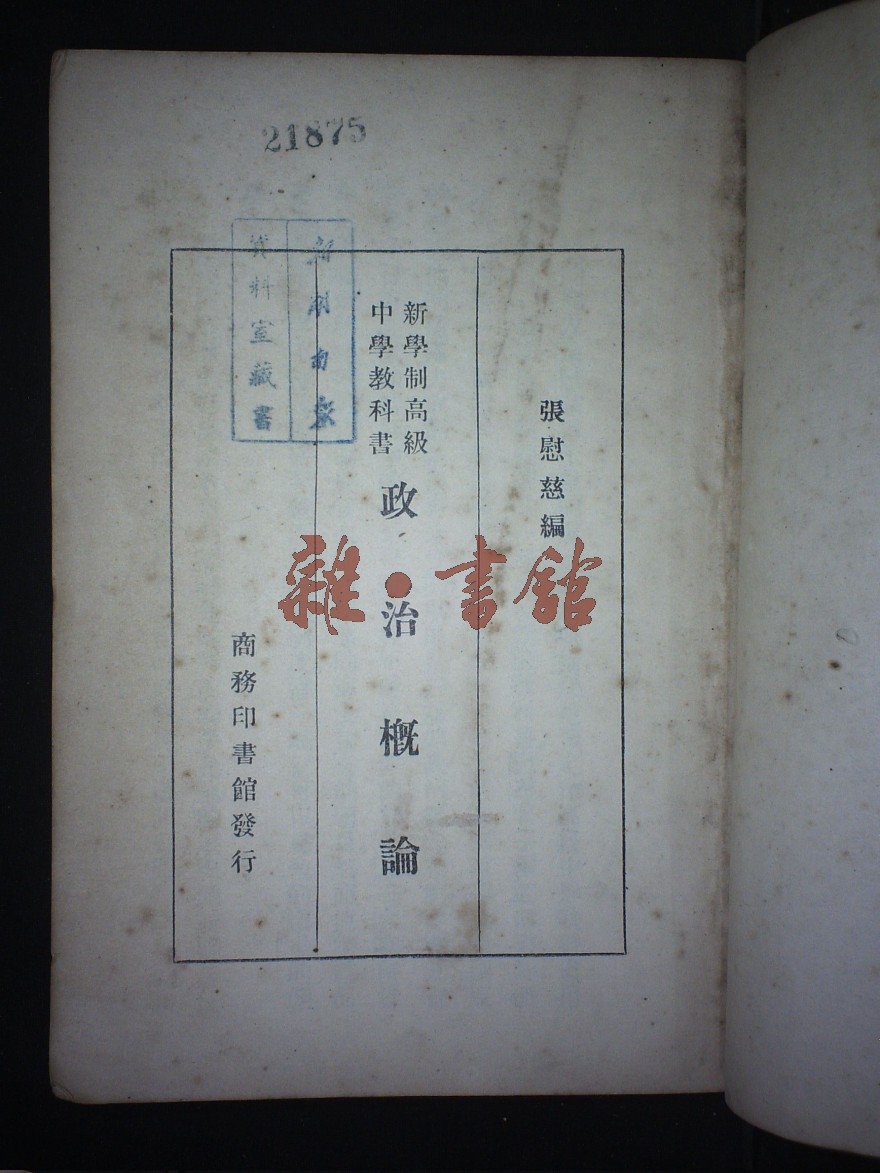 21875
張慰慈編
新學制高級
中學教科書
政治概論
商務印書館發行
新湖南報
資料室藏書
雜·書館